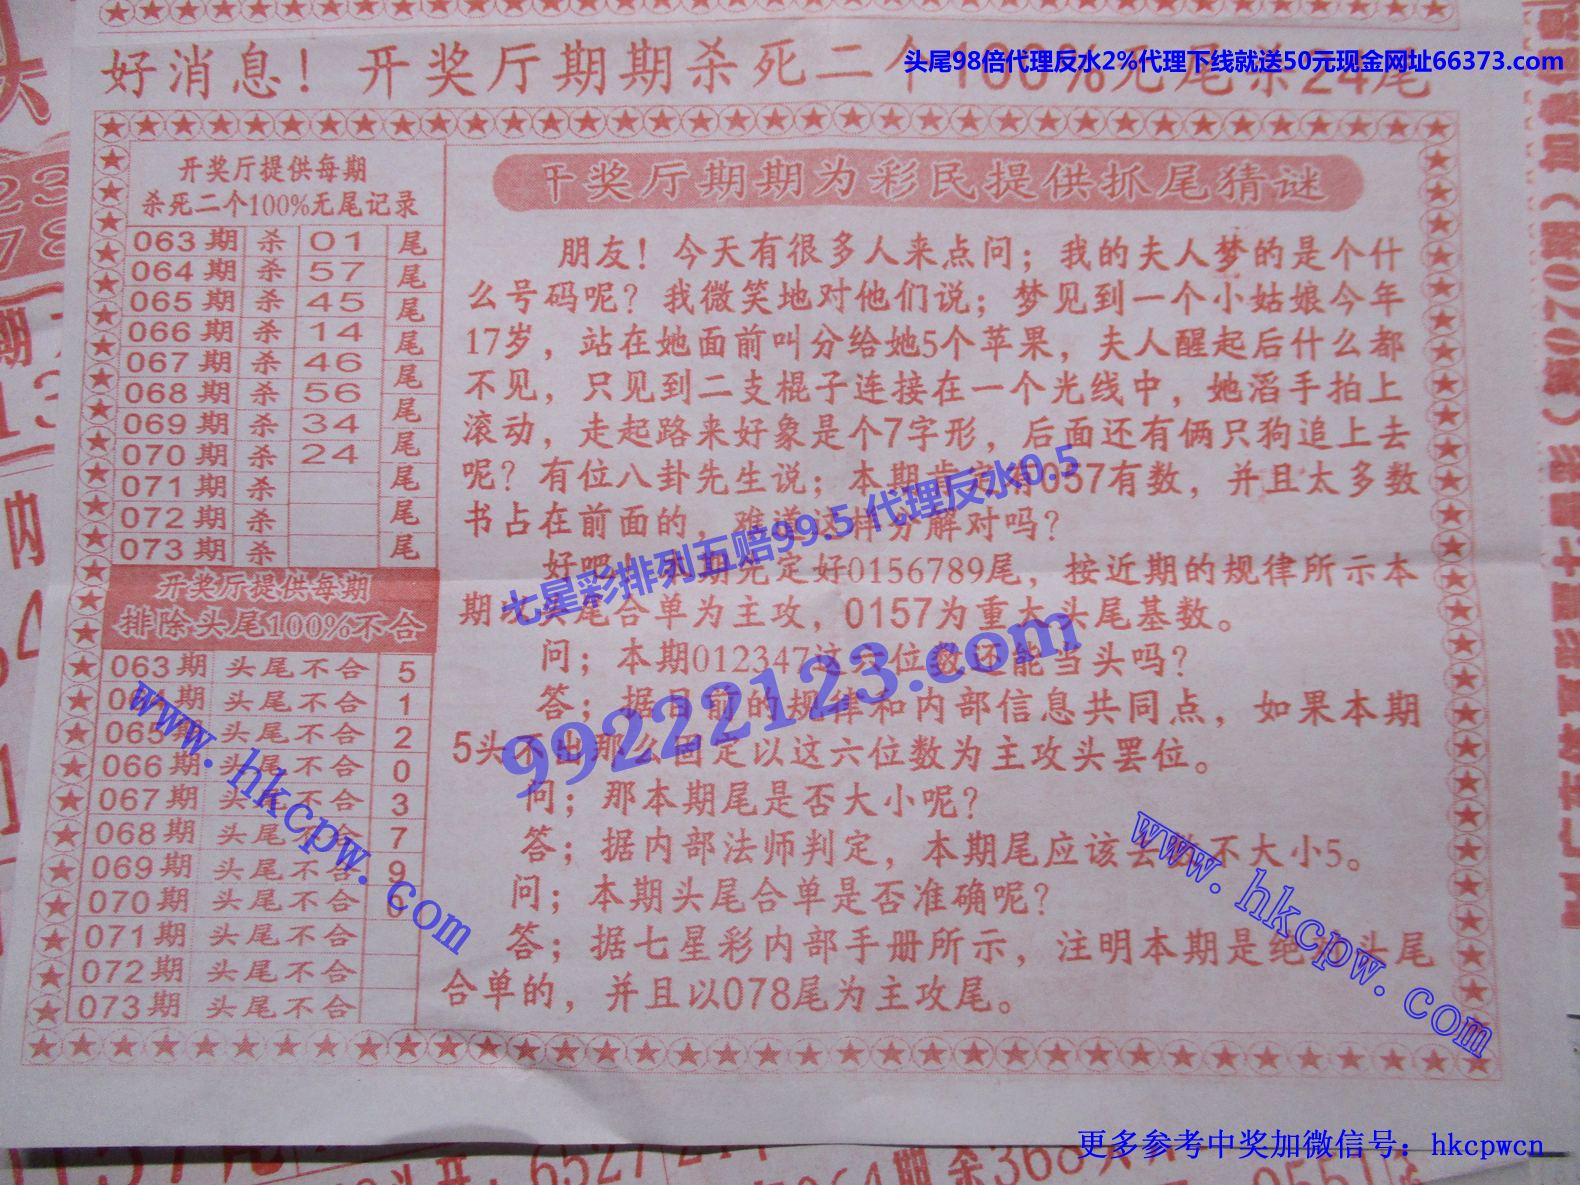 好消息！开奖厅期期杀死二个100%无尾杀24尾
头尾98倍代理反水2%代理下线就送50元现金网址66373.com
开奖厅提供每期
杀死二个100%无尾记录
063期 杀 01 尾
064期 杀 57 尾
065期 杀 45 尾
066期 杀 14 尾
067期 杀 46 尾
068期 杀 56 尾
069期 杀 34 尾
070期 杀 24 尾
071期 杀 尾
072期 杀 尾
073期 杀 尾
开奖厅提供每期
排除头尾100%不合
063期 头尾不合 5
064期 头尾不合 1
065期 头尾不合 2
066期 头尾不合 0
067期 头尾不合 3
068期 头尾不合 7
069期 头尾不合 9
070期 头尾不合
071期 头尾不合
072期 头尾不合
073期 头尾不合
开奖厅期期为彩民提供抓尾猜谜
朋友！今天有很多人来点问；我的夫人梦的是个什
么号码呢？我微笑地对他们说；梦见到一个小姑娘今年
17岁，站在她面前叫分给她5个苹果，夫人醒起后什么都
不见，只见到二支棍子连接在一个光线中，她滔手拍上
滚动，走起路来好象是个7字形，后面还有俩只狗追上去
呢？有位八卦先生说；本期肯定有057有数，并且太多数
书占在前面的，难道这样分解对吗？
好吧！本期先定好0156789尾，按近期的规律所示本
期以头尾合单为主攻，0157为重大头尾基数。
问；本期012347这六位数还能当头吗？
答；据目前的规律和内部信息共同点，如果本期
5头不出那么固定以这六位数为主攻头罢位。
问；那本期尾是否大小呢？
答；据内部法师判定，本期尾应该去数不大小5。
问；本期头尾合单是否准确呢？
答；据七星彩内部手册所示，注明本期是绝对头尾
合单的，并且以078尾为主攻尾。
七星彩排列五赔99.5 代理反水0.5
99222123.com
www.hkcpw.com
www.hkcpw.com
更多参考中奖加微信号：hkcpwcn